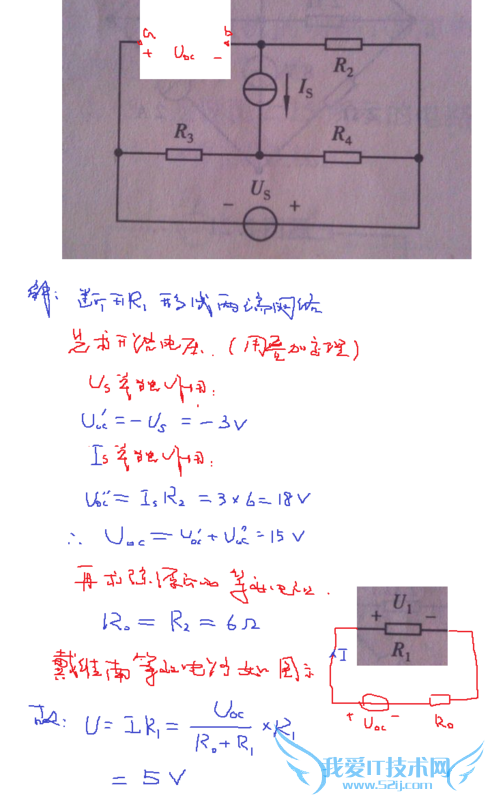 a b
+ Uoc −
R₂
I_S
R₃
R₄
U_S
− +
解：断开R₁ 形成两端网络
先求开路电压．（用叠加定理）
Us单独作用：
Uoc′ = −Us = −3V
Is单独作用：
Uoc″ = IsR₂ = 3×6 = 18V
∴ Uoc = Uoc′ + Uoc″ = 15V
再求除源后的等效电阻．
R₀ = R₂ = 6Ω
戴维南等效电路如图示
+ U₁ −
R₁
I
+ Uoc − R₀
故：U = IR₁ = Uoc / (R₀ + R₁) × R₁
= 5V
我爱IT技术网
www.52ij.com